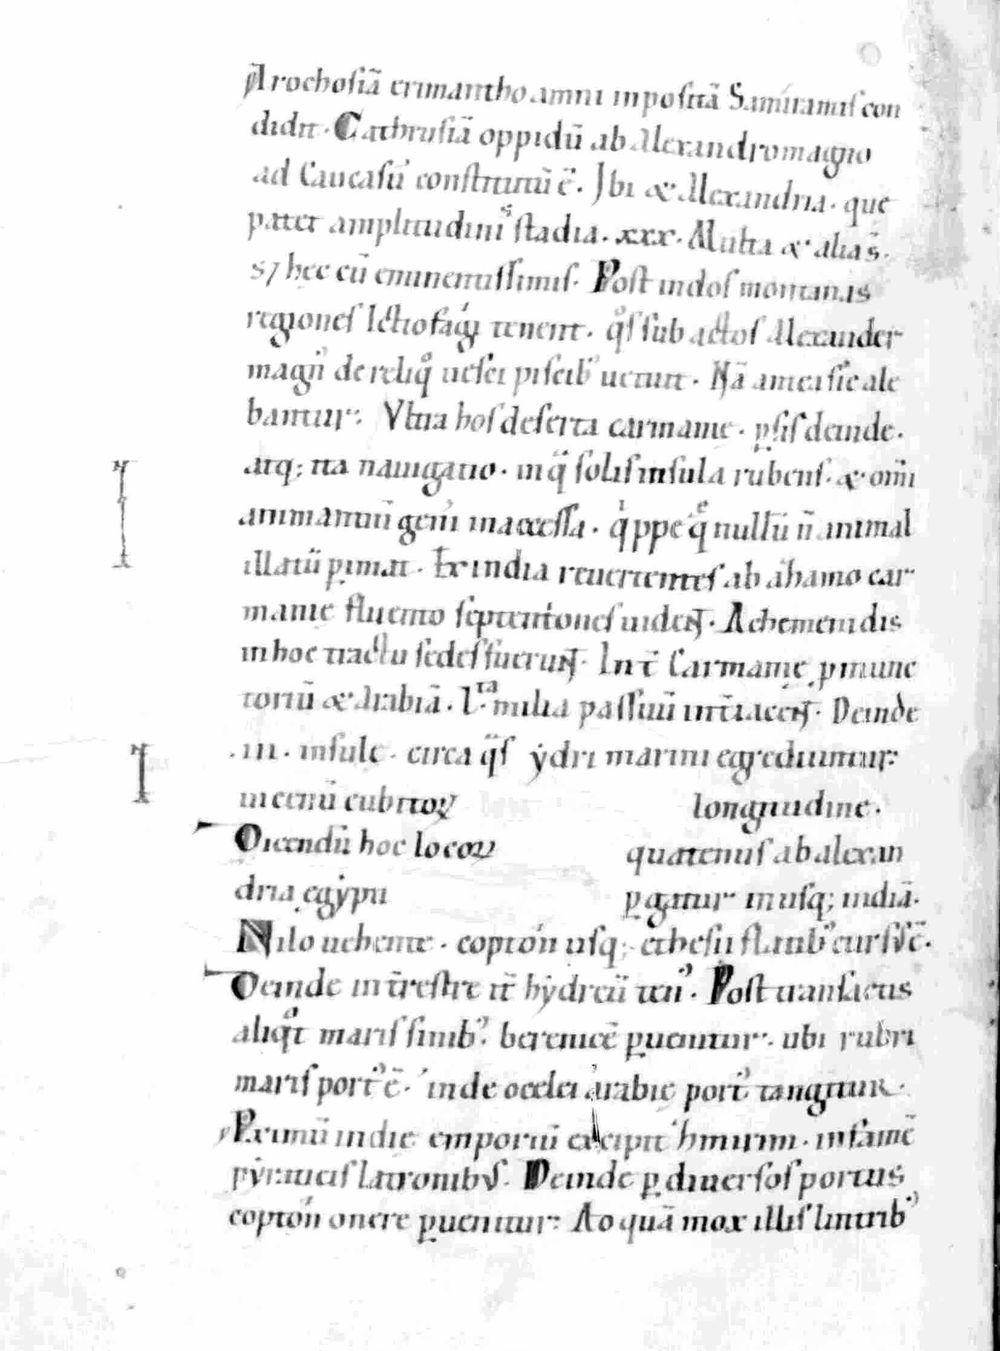 Arochosiā erimantho amni inpositā Samiramis con
didit. Cathrusiā oppidū ab Alexandro magno
ad Caucasū constitutū ē. Ibi & Alexandria. que
patet amplitudinis stadia. xxx. Multa & alia s̄.
s; hec cū eminentissimis. Post indos montanas
regiones Icthiofagi tenent. q̊s subactos Alexander
magn' de reliq̊ uesci piscib' uetuit. Nā antea sic ale
bantur. Vltra hos deserta carmanie. p̱sis deinde.
atq; ita nauigatio. in q̄ solis insula rubens. & om̄i
animantiū gen̄i inaccessa. q̍ppe q̄ nullū n̄ animal
illatū p̱imat. Ex india reuertentes ab ahamo car
manie fluento septentiones uident̄. Achemenidis
in hoc tractu sedes fuerunt̄. Int̄ Carmanię p̱muncc
toriū & Arabiā. L.ta milia passuū int̄iacent̄. Deinde
.iii. insule. circa q̄s ẏdri marini egrediuntur
uicenū cubitoꝝ longitudine.
Dicendū hoc locoꝝ quatenus ab alexan
dria ęgẏpti p̱gitur inusq; indiā.
Nilo uehente. copton usq; ethesiis flatib' cursus ē.
Deinde int̄restre it̄ hẏdreū ten'. Post transactis
aliq̊t maris sinib'. berenicē p̱uenitur. ubi rubri
maris port' ē. inde ocelei arabie port' tangitur.
Pximū indie emporiū excipit himirim. infamē
pẏraticis latronibus. Deinde p̱ diuersos portus
copton onere p̱uenitur. Ad quā mox illis lintrib'